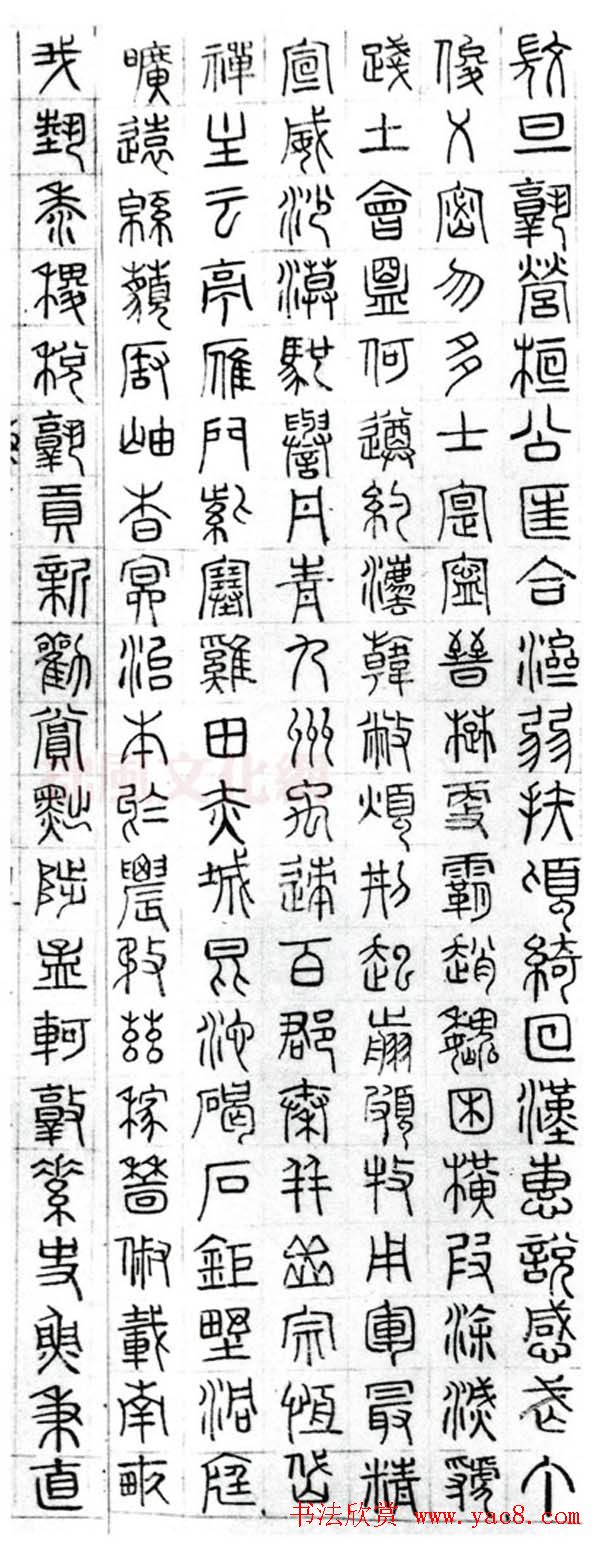 微旦孰營桓公匡合濟弱扶傾綺回漢惠說感武丁
俊乂密勿多士寔寧晉楚更霸趙魏困橫假涂滅虢
踐土會盟何遵約灋韓敝煩刑起翦頗牧用軍最精
宣威沙漠馳譽丹青九州禹迹百郡秦并岳宗恆岱
禪主云亭雁門紫塞雞田赤城昆池碣石鉅野洞庭
曠遠緜藐巖岫杳冥治本於農務茲稼穡俶載南畝
我藝黍稷稅孰貢新勸賞黜陟孟軻敦素史魚秉直
书法欣赏 www.yac8.com